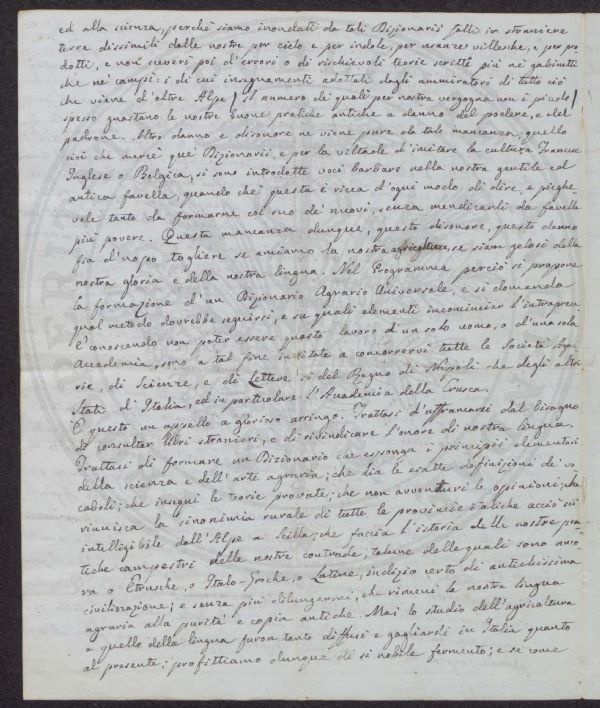 ed alla scienza, perchè siamo inondati da tali Dizionarii fatti in straniere
terre dissimili dalle nostre per cielo e per indole, per usanze villesche, e per pro
dotti, e non sceveri poi d'errori o di rischievoli teorie scritte più ne' gabinetti
che ne' campi: i di cui insegnamenti adottati dagli ammiratori di tutto ciò
che viene d'oltre Alpe (il numero de' quali per nostra vergogna non è piccolo)
spesso guastano le nostre buone pratiche antiche a danno del podere, e del
padrone. Altro danno e disonore ne viene pure da tale mancanza, quello
cioè che mercè que' Dizionarii e per la viltade d'imitare la cultura Francese
Inglese o Belgica, si sono introdotte voci barbare nella nostra gentile ed
antica favella, quando chè questa è ricca d'ogni modo di dire, e pieghe-
vole tanto da formarne col suo de' nuovi, senza mendicarli da favelle
più povere. Questa mancanza dunque, questo disonore, questo danno
fia d'uopo togliere se amiamo la nostra agricoltura, se siam gelosi della
nostra gloria e della nostra lingua. Nel Programma perciò si propone
la formazione d'un Dizionario Agrario Universale, e si domanda
qual metodo dovrebbe seguirsi, e su quali elementi incominciar l'intrapresa
E conoscendo non poter essere questo lavoro d'un solo uomo, o d'una sola
Accademia, sono a tal fine invitate a concorrervi tutte le Società Agra-
rie, di Scienze, e di Lettere sì del Regno di Napoli che degli altri
Stati d'Italia, ed in particolare l'Accademia della Crusca.
È questo un appello a glorioso arringo. Trattasi d'affrancarsi dal bisogno
di consultar libri stranieri, e di rivindicare l'onore di nostra lingua.
Trattasi di formare un Dizionario che esponga i principii elementari
della scienza e dell'arte agraria; che dia le esatte definizioni de' vo-
caboli; che insegni le teorie provate; che non avventuri le opinioni; che
riunisca la sinonimia rurale di tutte le provincie italiche acciò sia
intelligibile dall'Alpe a Scilla; che faccia l'istoria delle nostre pra-
tiche campestri delle nostre contrade, talune delle quali sono anco-
ra o Etrusche, o Italo-Greche, o Latine, indizio certo di antichissima
civilizzazione; e senza più dilungarmi, che rimeni la nostra lingua
agraria alla purità e copia antiche. Mai lo studio dell'agricoltura
e quello della lingua furon tanto diffusi e gagliardi in Italia quanto
al presente; profittiamo dunque di sì nobile fermento; e sì come